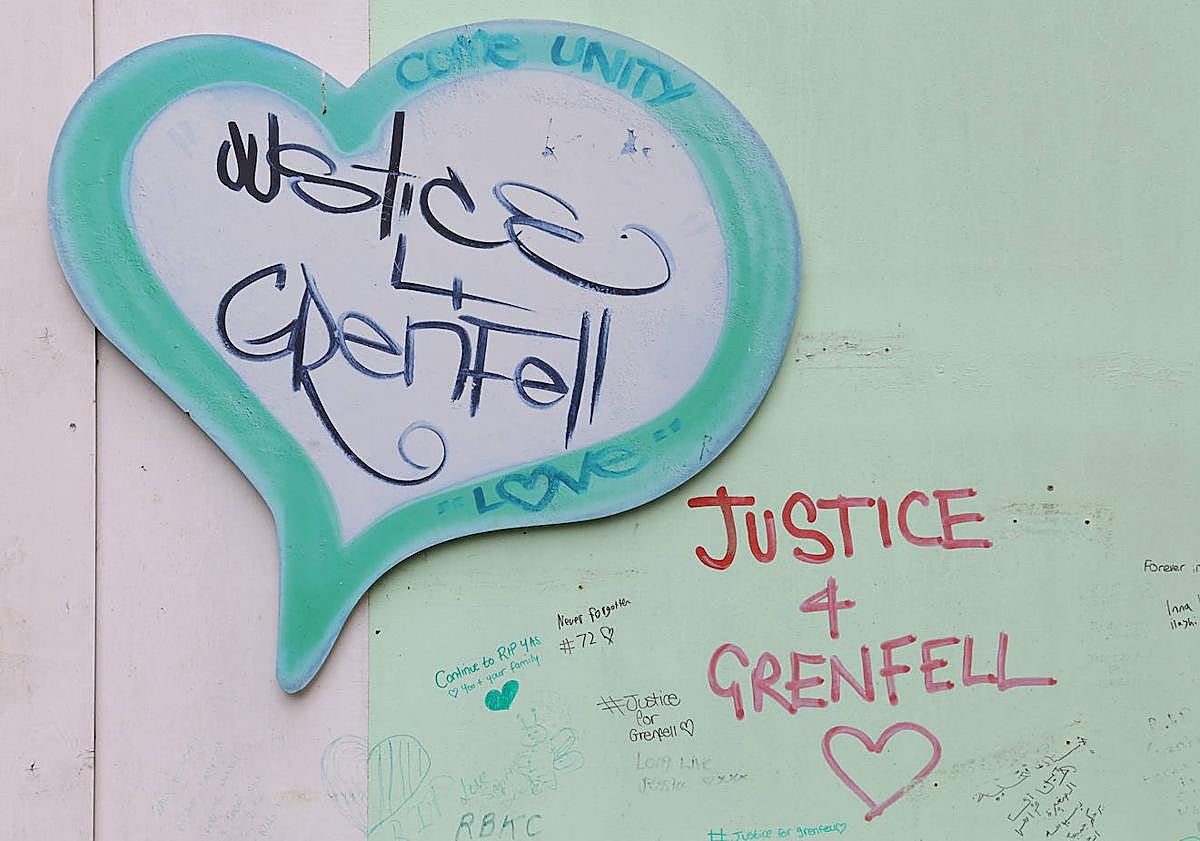 COME UNITY
JUSTICE
4
GRENFELL
"LOVE"
JUSTICE
4
GRENFELL
Never forgotten
#72
Continue to RIP YAS
You + your family
#Justice
for
Grenfell
Long Live
RIP
RBKC
# Justice for grenfell
Forever in
Inna